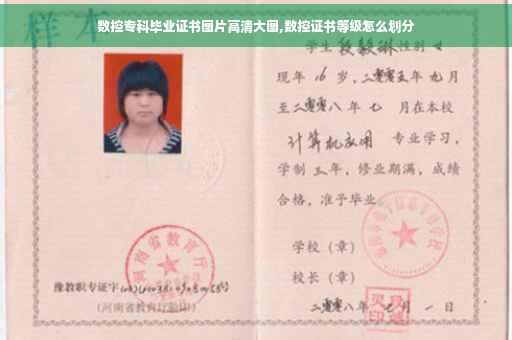 数控专科毕业证书图片高清大图,数控证书等级怎么划分
样本
学生 段毅琳 性别 女
现年 16 岁,二零零五年 九月
至二零零八年 七 月在本校
计算机应用 专业学习,
学制 三年,修业期满,成绩
合格,准予毕业
学校(章)
校长(章)
河南省教育厅
豫教职专证字
(河南省教育厅验印)
二零零八年 月 一 日